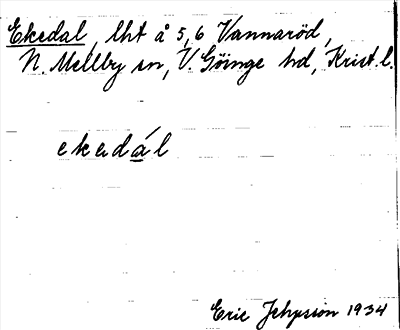 Ekedal, lht å 5,6 Vannaröd,
N. Mellby sn, V. Göinge hd, Krist. l.
ekedál
Eric Jehpsson 1934